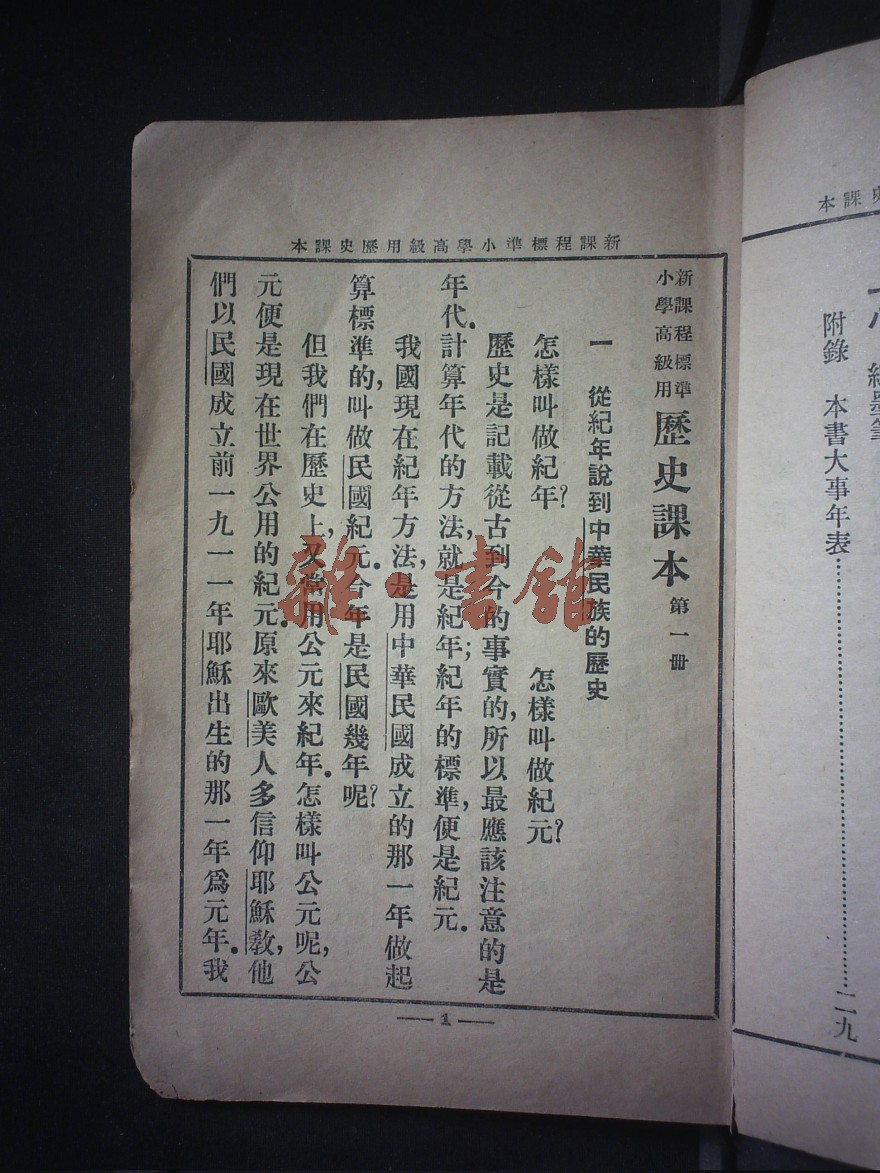 新課程標準小學高級用歷史課本
新課程標準
小學高級用
歷史課本 第一冊
一 從紀年說到中華民族的歷史
怎樣叫做紀年？ 怎樣叫做紀元？
歷史是記載從古到今的事實的，所以最應該注意的是
年代。計算年代的方法，就是紀年；紀年的標準，便是紀元。
我國現在紀年方法，是用中華民國成立的那一年做起
算標準的，叫做民國紀元。今年是民國幾年呢？
但我們在歷史上，又常用公元來紀年。怎樣叫公元呢，公
元便是現在世界公用的紀元。原來歐美人多信仰耶穌教，他
們以民國成立前一九一一年耶穌出生的那一年為元年。我
1
史課本
附錄 本書大事年表……二九
雜·書館